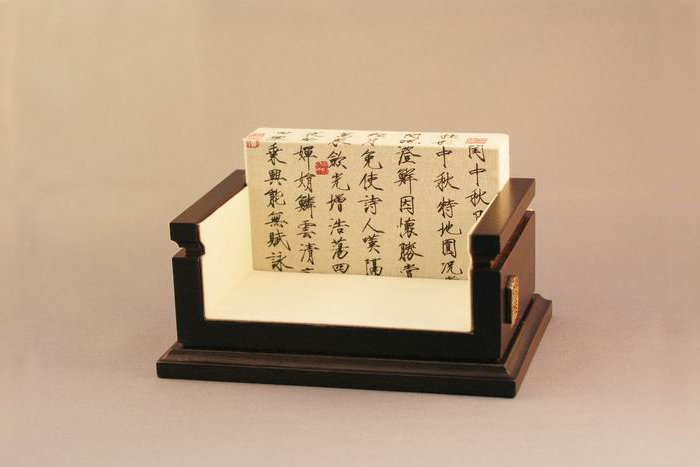 閏中秋
中秋特地圓況
澄鮮因懷勝賞
免使詩人嘆隔
斂光增浩蕩四
嬋娟鱗雲清
乘興能無賦詠